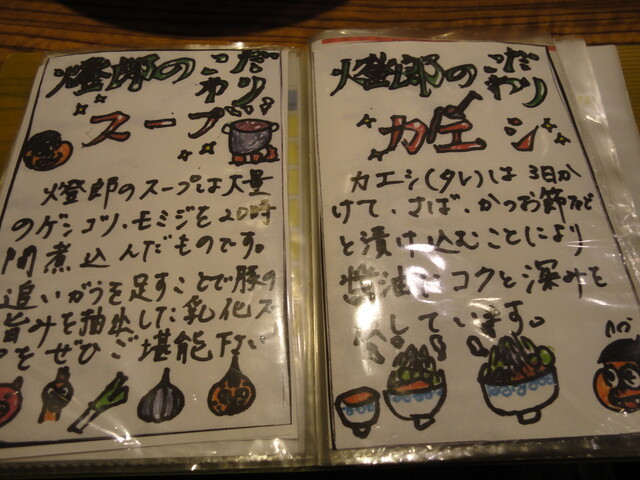 燈郎の こだわり
スープ
燈郎のスープは大量
のゲンコツ、モミジを20時
間煮込んだものです。
追いがらを足すことで豚の
旨みを抽出した乳化ス
をぜひご堪能下さい
燈郎の こだわり
カエシ
カエシ(タレ)は3日か
けて、さば、かつお節など
と漬け込むことにより
醤油にコクと深みを
しています。